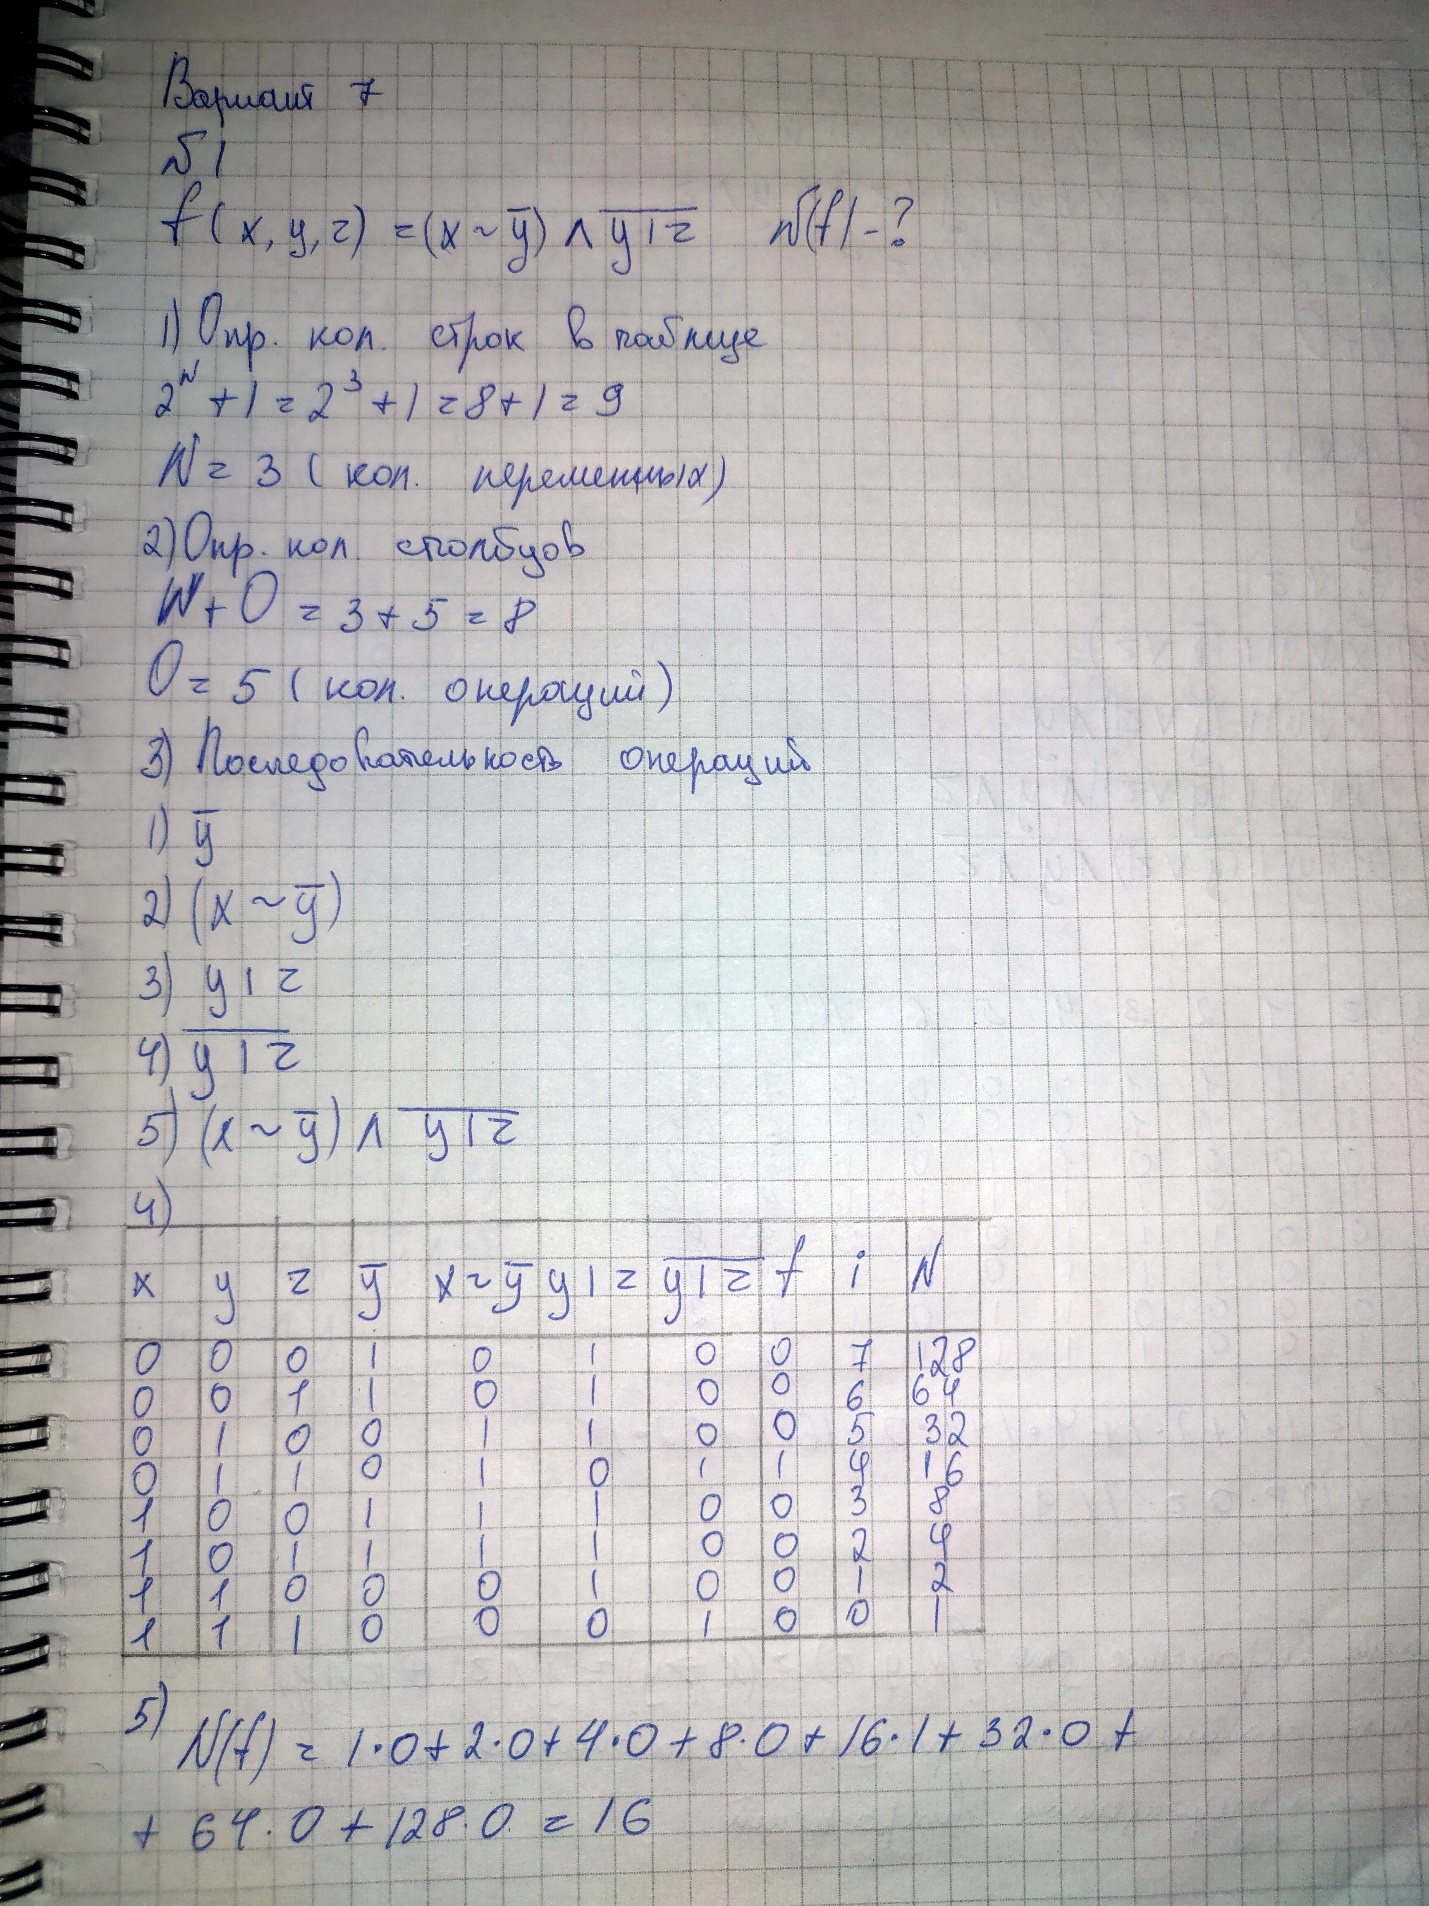 Вариант 7
№1
f(x, y, z) = (x ~ y̅) ∧ y̅|̅z̅ N(f) - ?
1) Опр. кол. строк в таблице
2ᴺ + 1 = 2³ + 1 = 8 + 1 = 9
N = 3 (кол. переменных)
2) Опр. кол. столбцов
N + O = 3 + 5 = 8
O = 5 (кол. операций)
3) Последовательность операций
1) y̅
2) (x ~ y̅)
3) y | z
4) y̅|̅z̅
5) (x ~ y̅) ∧ y̅|̅z̅
4)
x y z y̅ x ~ y̅ y | z y̅|̅z̅ f i N
0 0 0 1 0 1 0 0 7 128
0 0 1 1 0 1 0 0 6 64
0 1 0 0 1 1 0 0 5 32
0 1 1 0 1 0 1 1 4 16
1 0 0 1 1 1 0 0 3 8
1 0 1 1 1 1 0 0 2 4
1 1 0 0 0 1 0 0 1 2
1 1 1 0 0 0 1 0 0 1
5) N(f) = 1·0 + 2·0 + 4·0 + 8·0 + 16·1 + 32·0 +
+ 64·0 + 128·0 = 16